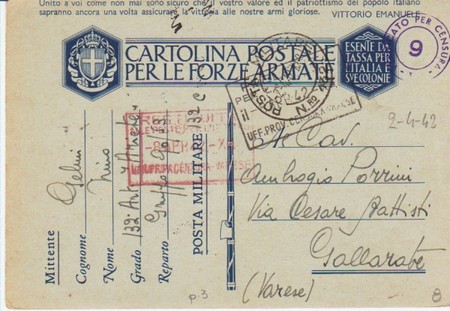 Unito a voi come non mai sono sicuro che il vostro valore ed il patriottismo del popolo italiano
sapranno ancora una volta assicurare la vittoria alle nostre armi gloriose. VITTORIO EMANUELE
CARTOLINA POSTALE
PER LE FORZE ARMATE
ESENTE DA
TASSA PER
L'ITALIA E
SVE COLONIE
PER CENSURA
9
POSTA
UFF. PROV. CENSURA VARESE
2-4-42
Al Cav.
Ambrogio Porrini
Via Cesare Battisti
Gallarate
(Varese)
Mittente
Cognome
Nome Nino
Grado
Reparto
POSTA MILITARE 132 C
p.3
8